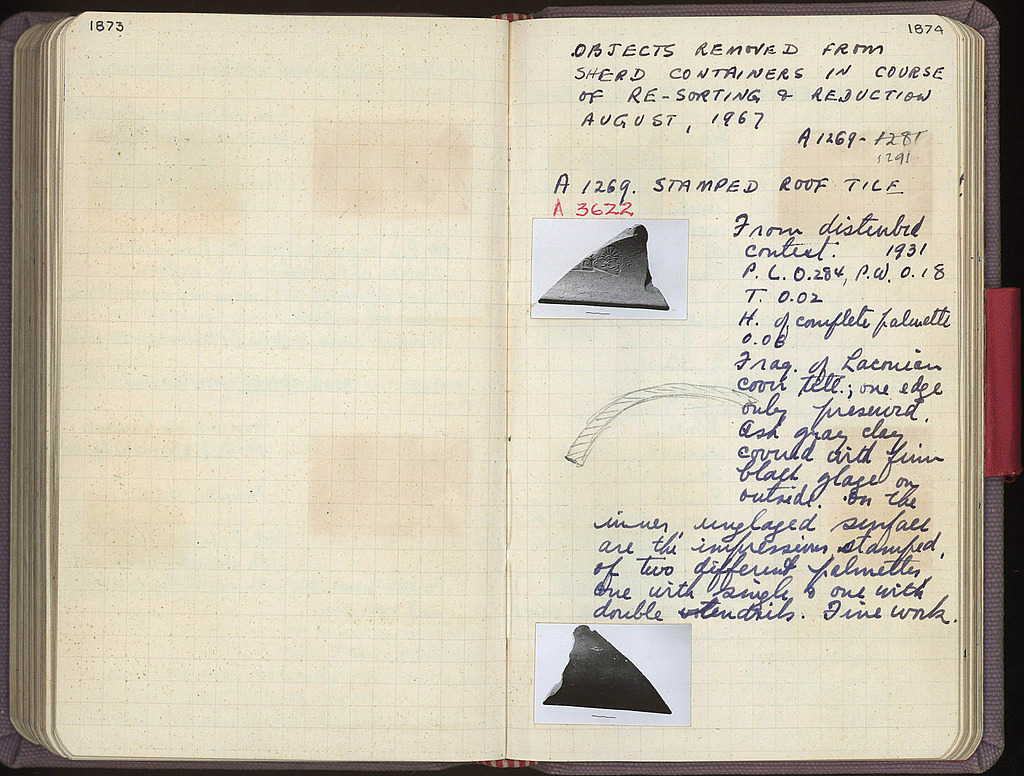 1873
1874
OBJECTS REMOVED FROM
SHERD CONTAINERS IN COURSE
OF RE-SORTING & REDUCTION
AUGUST, 1967
A 1269 - 1281
1291
A 1269. STAMPED ROOF TILE
A 3622
From disturbed
context. 1931
P. L. 0.284, P.W. 0.18
T. 0.02
H. of complete palmette
0.06
Frag. of Laconian
cover tile; one edge
only preserved.
Ash gray clay
covered with firm
black glaze on
outside. On the
inner, unglazed surface,
are the impressions stamped,
of two different palmettes,
one with single & one with
double tendrils. Fine work.